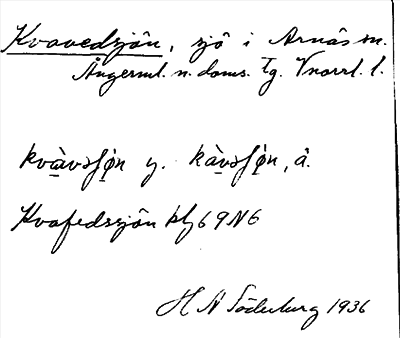 Kvavedsjön, sjö i Arnäs sn.
Ångerml. n. doms. tg. Vnorrl. l.
kvàvəʃǫ́n y. kàvəʃǫ́n, å.
Kvafedssjön blz 69N6
H N Söderberg 1936